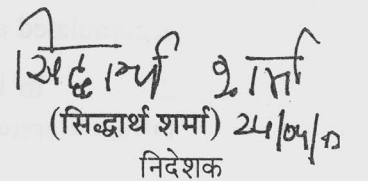 सिद्धार्थ शर्मा
(सिद्धार्थ शर्मा) 24/04/
निदेशक